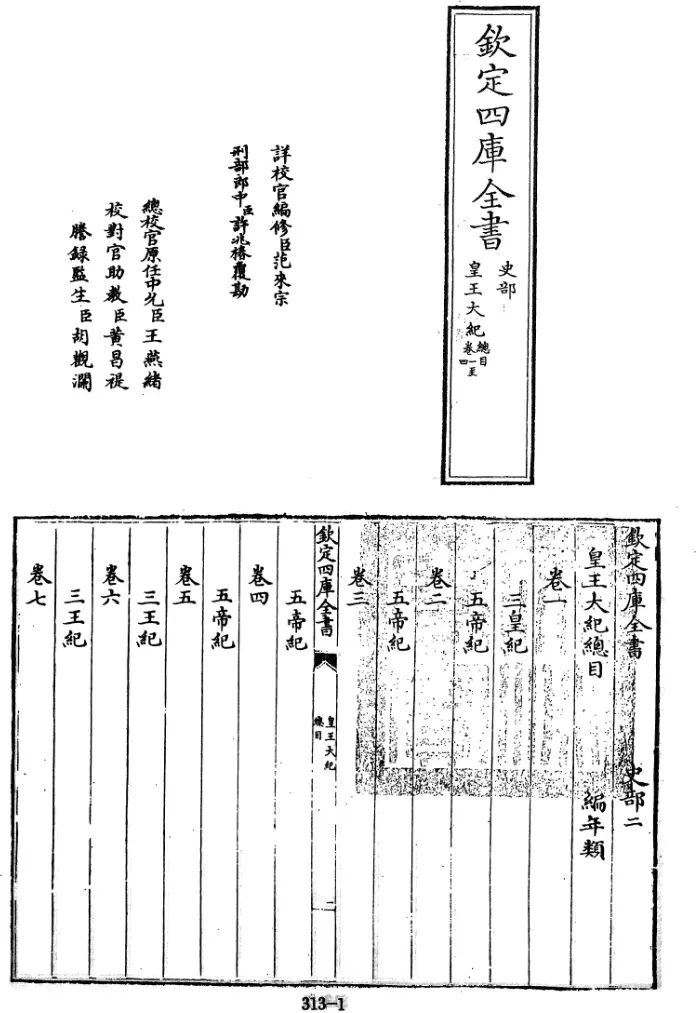 欽定四庫全書
史部
皇王大紀
總目
卷一至
四
詳校官編修臣范來宗
刑部郎中臣許兆椿覆勘
總校官原任中允臣王燕緒
校對官助教臣黄昌禔
謄録監生臣胡觀瀾
欽定四庫全書
史部二
皇王大紀總目
編年類
卷一
三皇紀
卷二
五帝紀
卷三
五帝紀
欽定四庫全書
皇王大紀
總目
一
五帝紀
卷四
五帝紀
卷五
三王紀
卷六
三王紀
卷七
313-1